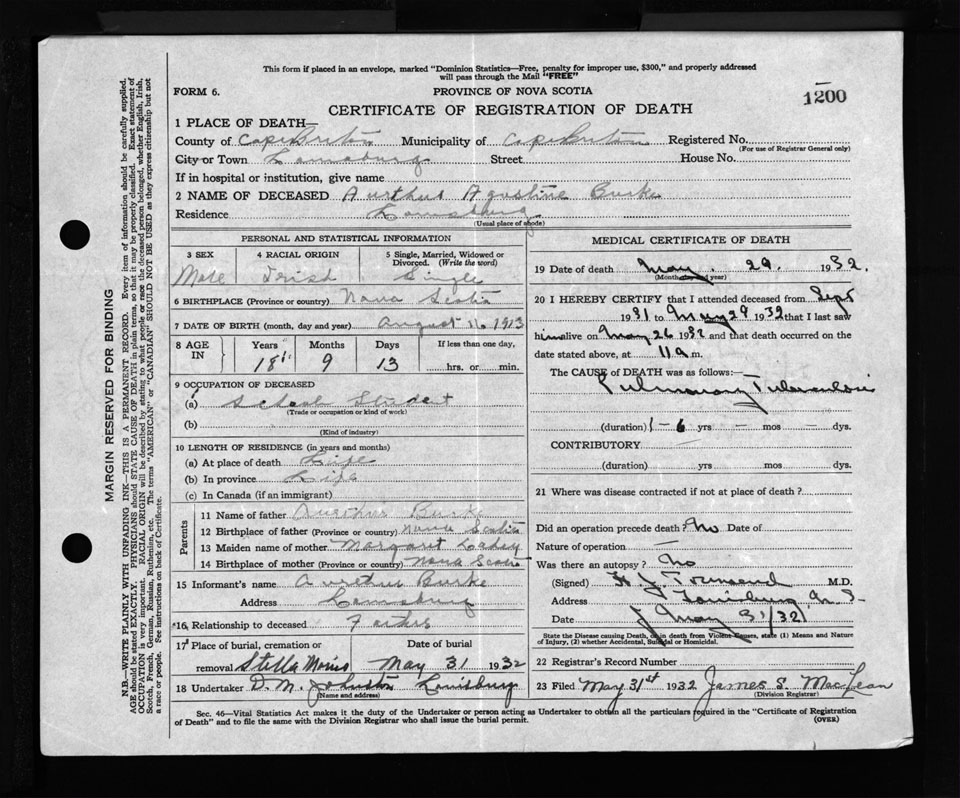 This form if placed in an envelope, marked "Dominion Statistics—Free, penalty for improper use, $300," and properly addressed
will pass through the Mail "FREE"
FORM 6.
PROVINCE OF NOVA SCOTIA
1200
CERTIFICATE OF REGISTRATION OF DEATH
1 PLACE OF DEATH—
County of Cape Breton Municipality of Cape Breton Registered No.
(For use of Registrar General only)
City or Town Louisburg Street House No.
If in hospital or institution, give name
2 NAME OF DECEASED Aurthur Agustine Burke
Residence Louisburg
(Usual place of abode)
PERSONAL AND STATISTICAL INFORMATION
3 SEX 4 RACIAL ORIGIN 5 Single, Married, Widowed or Divorced. (Write the word)
Male Irish Single
6 BIRTHPLACE (Province or country) Nova Scotia
7 DATE OF BIRTH (month, day and year) August 16 1913
8 AGE IN Years Months Days If less than one day,
18 9 13 hrs. or min.
9 OCCUPATION OF DECEASED
(a) School Student
(Trade or occupation or kind of work)
(b)
(Kind of industry)
10 LENGTH OF RESIDENCE (in years and months)
(a) At place of death Life
(b) In province Life
(c) In Canada (if an immigrant)
Parents
11 Name of father Aurthur Burke
12 Birthplace of father (Province or country) Nova Scotia
13 Maiden name of mother Margaret Lahey
14 Birthplace of mother (Province or country) Nova Scotia
15 Informant's name Aurthur Burke
Address Louisburg
16 Relationship to deceased Father
17 Place of burial, cremation or Date of burial
removal Stella Maris May 31 1932
18 Undertaker D. M. Johnston Louisburg
(Name and address)
MEDICAL CERTIFICATE OF DEATH
19 Date of death May 29. 1932.
(Month, day and year)
20 I HEREBY CERTIFY that I attended deceased from Sept
1931 to May 29 1932 that I last saw
him alive on May 26 1932 and that death occurred on the
date stated above, at 11 a m.
The CAUSE of DEATH was as follows:—
Pulmonary Tuberculosis
(duration) 1 – 6 yrs – mos – dys.
CONTRIBUTORY
(duration) yrs – mos dys.
21 Where was disease contracted if not at place of death?
Did an operation precede death? No Date of
Nature of operation —
Was there an autopsy? No
(Signed) H. J. Townsend M.D.
Address Louisburg N. S.
Date May 31/32
State the Disease causing Death, or in death from Violent Causes, state (1) Means and Nature
of Injury, (2) whether Accidental, Suicidal or Homicidal.
22 Registrar's Record Number
23 Filed May 31st 1932 James S. MacLean
(Division Registrar)
Sec. 46—Vital Statistics Act makes it the duty of the Undertaker or person acting as Undertaker to obtain all the particulars required in the "Certificate of Registration
of Death" and to file the same with the Division Registrar who shall issue the burial permit. (OVER)
MARGIN RESERVED FOR BINDING
N.B.—WRITE PLAINLY WITH UNFADING INK—THIS IS A PERMANENT RECORD. Every item of information should be carefully supplied.
AGE should be stated EXACTLY. PHYSICIANS should STATE CAUSE OF DEATH in plain terms, so that it may be properly classified. Exact statement of
OCCUPATION is very important. RACIAL ORIGIN will be described by stating to what people or race the deceased person belonged, whether English, Irish,
Scotch, French, German, Russian, Ruthenian, etc. The terms "AMERICAN" or "CANADIAN" SHOULD NOT BE USED as they express citizenship but not
a race or people. See instructions on back of Certificate.